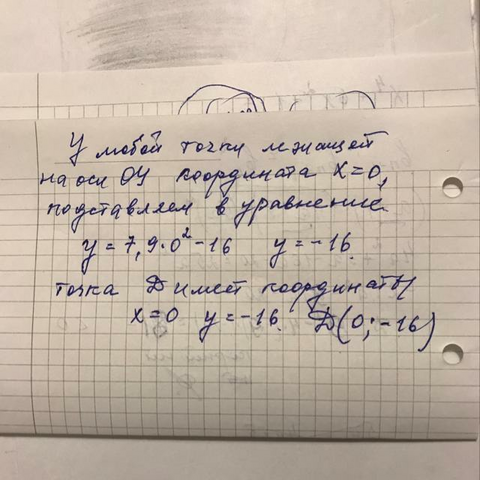 У любой точки лежащей
на оси ОУ координата x=0,
подставляем в уравнение
y = 7,9·0² -16 y = -16
точка Д имеет координаты
x=0 y=-16 Д(0; -16)